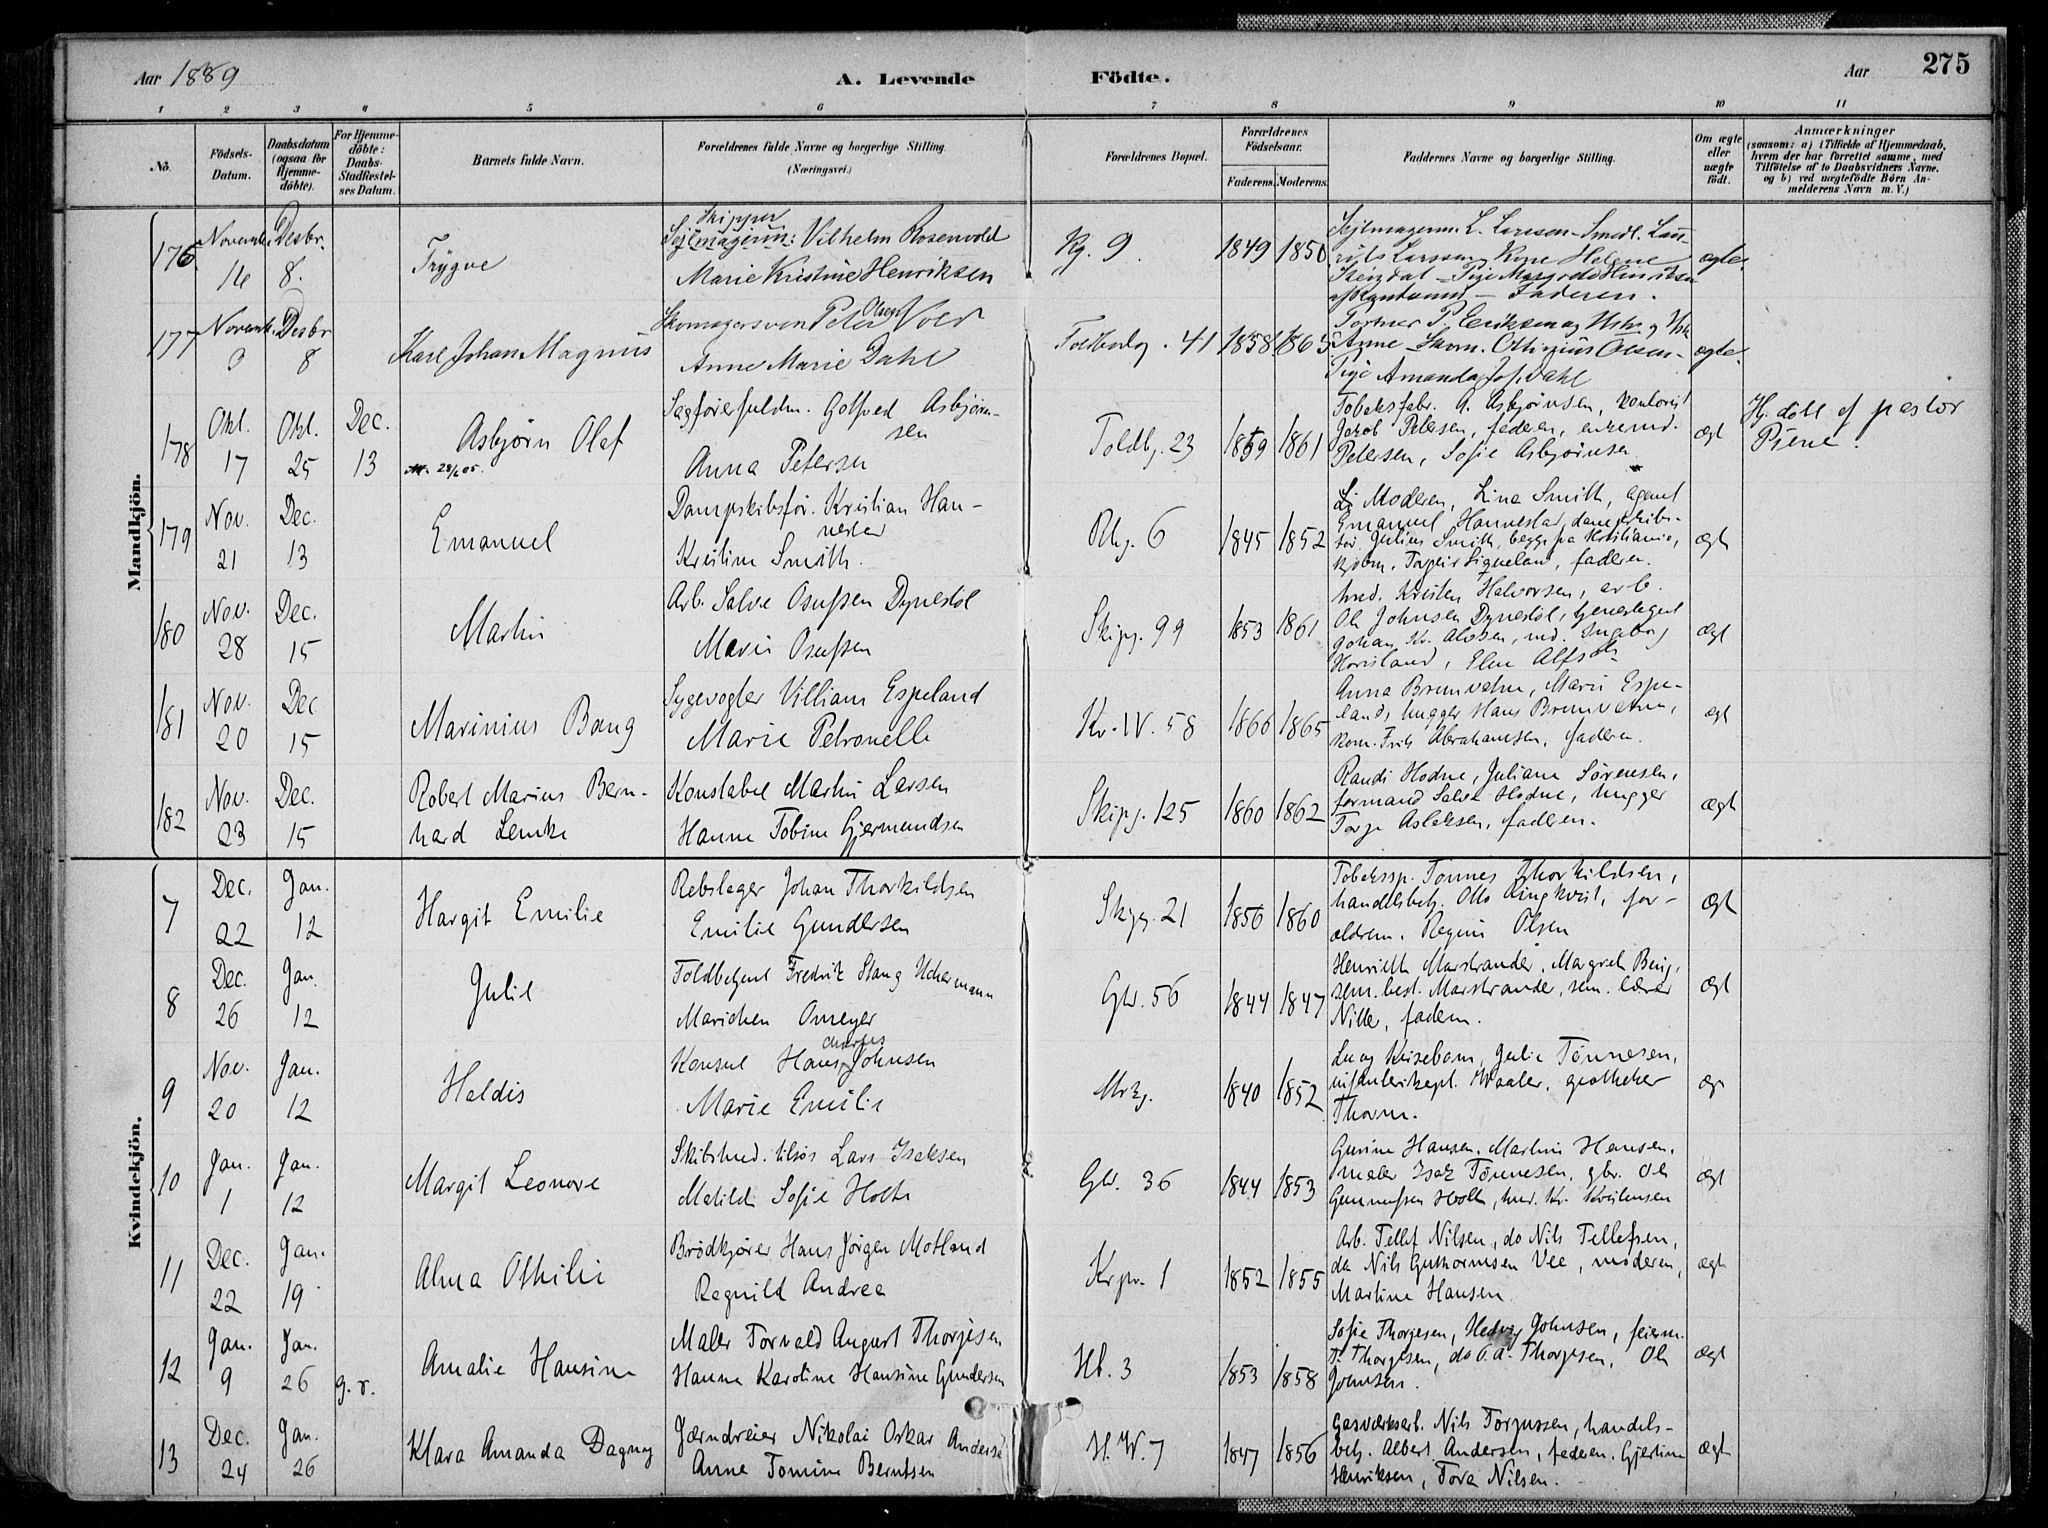 275
Aar 1889
A. Levende
Födte.
Aar
1 2 3 4 5 6 7 8 9 10 11
No.
Födsels-
Datum.
Daabsdatum
(ogsaa for
Hjemme-
döbte).
For Hjemme-
döbte:
Daabs-
Stadfæstel-
ses Datum.
Barnets fulde Navn.
Forældrenes fulde Navne og borgerlige Stilling.
(Næringsvei.)
Forældrenes Bopæl.
Forældrenes
Födselsaar.
Faderens. Moderens.
Faddernes Navne og borgerlige Stilling.
Om ægte
eller
uægte
födt.
Anmærkninger
(saasom: a) i Tilfælde af Hjemmedaab,
hvem der har forrettet samme, med
Tilföielse af to Daabsvidners Navne,
og b) ved uægtefödte Börn An-
melderens Navn m. V.)
Mandkjön.
176 Novemb. 16 Desbr. 8. Trygve
Skipper
Sejlmagersv: Vilhelm Rosenvold
Marie Kristine Henriksen
Kg. 9. 1849 1850
Sejlmagerm. L. Larsen - Smedl. Lau-
rits Larsen Kone Helene
- Pige Margrete Henriksen
- Faderen.
ægte.
177 Novemb. 9 Desbr 8 Karl Johan Magnus
Skomagersven Peter Olsen Vold
Anne Marie Dahl
Toldbodg. 41 1858 1865
P. Eriksen og Hstr
Anne - Skom. Olsen -
Pige Amanda Jos. Dahl
ægte.
178 Okt. 17 Okt. 25 Dec. 13 Asbjørn Olaf
Sagførerfuldm. Gotfred Asbjørn-
sen
Anna Petersen
Toldbg. 23 1859 1861
Tobaksfabr. A. Asbjørnsen, kontorist
Jakob Petersen, faderen, enkemd.
Petersen, Sofie Asbjørnsen
ægt
Hj. døbt af pastor
179 Nov. 21 Dec. 13 Emanuel
Dampskibsfør. Kristian Han-
nestad
Kristine Smith.
Rhg. 6 1845 1852
Moderen, Lina Smith, agent
Emanuel Hannestad, dampskibs-
før. Julius Smith, begge på Kristiania,
faderen.
ægt
180 Nov. 28 Dec. 15 Martin
Arb. Salve Osufsen Dynestøl
Marie Osufsen
Skipg. 99 1853 1861
Kristen Halvorsen, arb.
Ole Johnsen Dynestøl,
Johan Kr. Ingeborg
Elen
ægt
181 Nov. 20 Dec 15 Marinius Bang
Sygevogter Villiam Espeland
Marie Petronelle
Kv. IV. 58 1866 1865
Anna Brunvatne, Marie Espe-
land, hugger Hans Brunvatne,
kom. Frits Abrahamsen, faderen.
ægt
182 Nov. 23 Dec. 15 Robert Marius Bern-
hard Lemke
Konstabel Martin Larsen
Hanne Tobine Gjermundsen
Skipg. 125 1860 1862
Randi Hodne, Juliane Sørensen,
formand Salve Hodne, hugger
Torje Aslaksen, faderen.
ægt
Kvindekjön.
7 Dec. 22 Jan. 12 Hargit Emilie
Rebslager Johan Thorkildsen
Emilie Gundersen
Skpg. 21 1856 1860
Tobakssp. Tønnes Thorkildsen,
handelsbetj. Otto Ringkvist, for-
ældrem. Regine Olsen
ægt
8 Dec. 26 Jan. 12 Julie
Toldbetjent Fredrik Stang Uchermann
Marichen Omeyer
Glv. 56 1844 1847
Henriette Marstrander, Margrete
sem. best. Marstrander, sem. lærer
Nille, fadern.
ægt
9 Nov. 20 Jan. 12 Haldis
Konsul Hans Charles Johnsen
Marie Emilie
Mrkg. 1840 1852
Lucy Krisebom, Julie Tønnesen,
infanterikapt. Waaler, apotheker
Thorm.
æg
10 Jan. 1 Jan. 12 Margit Leonore
Skibstmd. tilsøs Lars Isaksen
Matilde Sofie Holte
Glv. 36 1844 1853
Gurine Hansen, Martine Hansen,
maler Isak Tønnesen, gbr. Ole
Gunnufsen Holte, tmd. Kr. Kristensen
ægt
11 Dec. 22 Jan. 19 Alma Othilie
Brødkjører Hans Jørgen Motland
Regnild Andrea
Krpr. 1 1852 1855
Arb. Tellef Nilsen, do Nils Tellefsen,
do Nils Guthormsen Vee, moderen,
Martine Hansen
ægt
12 Jan. 9 Jan. 26 g. v. Amalie Hansine
Maler Torvald August Thorjesen
Hanne Karoline Hansine Gundersen
Hb. 3 1853 1858
Sofie Thorgesen, Hedvig Johnsen, feierm.
T. Thorgesen, do O. A. Thorgesen, Ole
Johnsen.
ægt
13 Dec. 24 Jan. 26 Klara Amanda Dagny
Jærndreier Nikolai Oskar Anderse
Anne Tomine Berntsen
H. W. 7 1847 1856
Gasværksarb. Nils Torjussen, handels-
betj. Albert Andersen, faderen, Gjertine
Henriksen, Tora Nilsen.
ægt